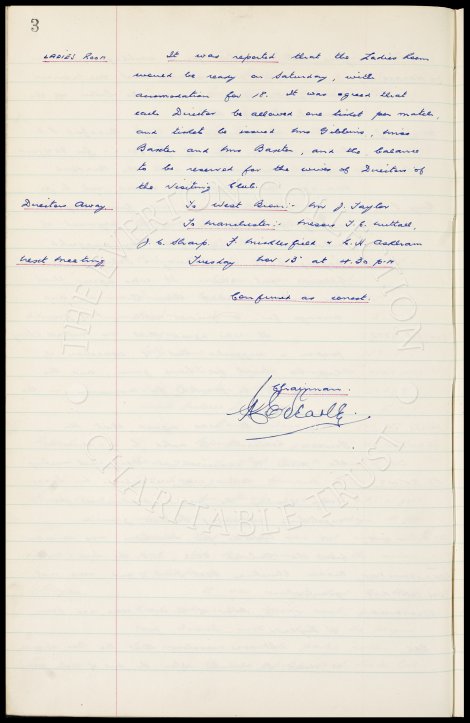 3
LADIES ROOM It was reported that the Ladies Room
would be ready on Saturday, with
accomodation for 18. It was agreed that
each Director be allowed one ticket per match,
and tickets be issued Mrs Gibbins, Miss
Baxter and Mrs Baxter, and the balance
to be reserved for the wives of Directors of
the Visiting Club.
Directors Away To West Brom:- Mr J. Taylor
To Manchester:- Messrs T. C. Nuttall,
J. C. Sharp. F. Micklesfield & C. H. Askham
Next Meeting Tuesday Nov 15 at 4.30 p.m
Confirmed as correct.
Chairman.
THE EVERTON COLLECTION
CHARITABLE TRUST